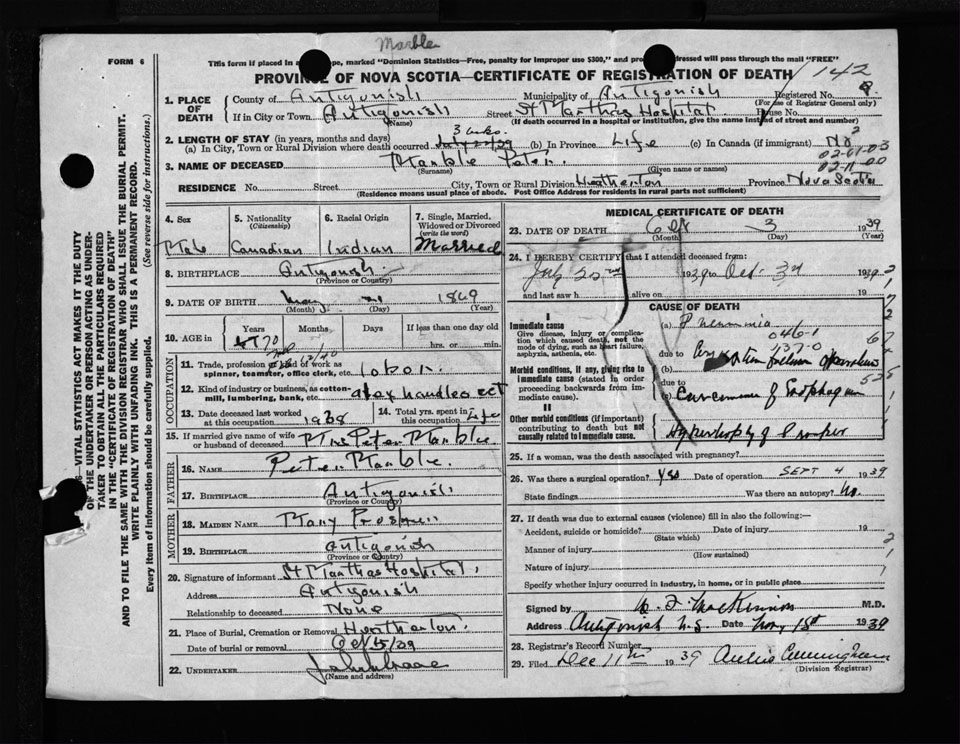 Marble
FORM 6
This form if placed in a pe, marked "Dominion Statistics—Free, penalty for improper use $300," and pro dressed will pass through the mail "FREE"
PROVINCE OF NOVA SCOTIA—CERTIFICATE OF REGISTRATION OF DEATH
142
1. PLACE OF DEATH
County of Antigonish Municipality of Antigonish Registered No.
(For use of Registrar General only)
If in City or Town Antigonish Street St Marthas Hospital House No.
(Name) (If death occurred in a hospital or institution, give the name instead of street and number)
3 wks.
2. LENGTH OF STAY (in years, months and days)
(a) In City, Town or Rural Division where death occurred July 22/39 (b) In Province Life (c) In Canada (if immigrant) No
02-01-03
02-11-00
3. NAME OF DECEASED Marble Peter
(Surname) (Given name or names)
RESIDENCE No. Street City, Town or Rural Division Heatherton Province Nova Scotia
(Residence means usual place of abode. Post Office Address for residents in rural parts not sufficient)
6—VITAL STATISTICS ACT MAKES IT THE DUTY
OF THE UNDERTAKER OR PERSON ACTING AS UNDER-
TAKER TO OBTAIN ALL THE PARTICULARS REQUIRED
IN THE "CERTIFICATE OF REGISTRATION OF DEATH"
AND TO FILE THE SAME WITH THE DIVISION REGISTRAR WHO SHALL ISSUE THE BURIAL PERMIT.
WRITE PLAINLY WITH UNFADING INK. THIS IS A PERMANENT RECORD.
Every item of information should be carefully supplied. (See reverse side for instructions.)
4. Sex
Male
5. Nationality
(Citizenship)
Canadian
6. Racial Origin
Indian
7. Single, Married, Widowed or Divorced
(write the word)
Married
8. BIRTHPLACE Antigonish
(Province or Country)
9. DATE OF BIRTH May 1869
(Month) (Day) (Year)
10. AGE in
Years Months Days If less than one day old
70 hrs. or min.
OCCUPATION
11. Trade, profession or kind of work as
spinner, teamster, office clerk, etc. Labor
12. Kind of industry or business, as cotton-
mill, lumbering, bank, etc. axe handles ect
13. Date deceased last worked
at this occupation 1938
14. Total yrs. spent in
this occupation Life
15. If married give name of wife
or husband of deceased Mrs Peter Marble
FATHER
16. NAME Peter Marble.
17. BIRTHPLACE Antigonish
(Province or Country)
MOTHER
18. MAIDEN NAME Mary Prosper
19. BIRTHPLACE Antigonish
(Province or Country)
20. Signature of informant St Marthas Hospital.
Address Antigonish
Relationship to deceased None
21. Place of Burial, Cremation or Removal Heatherton.
Date of burial or removal Oct 5/39
22. UNDERTAKER
(Name and address)
MEDICAL CERTIFICATE OF DEATH
23. DATE OF DEATH Oct 3 1939
(Month) (Day) (Year)
24. I HEREBY CERTIFY that I attended deceased from:
July 22nd 1939 to Oct. 3rd 1939
and last saw h alive on 19
CAUSE OF DEATH
I
Immediate cause
Give disease, injury or complica-
tion which caused death, not the
mode of dying, such as heart failure,
asphyxia, asthenia, etc.
(a) Pneumonia
046-1
137-0
due to
(b)
Morbid conditions, if any, giving rise to
immediate cause (stated in order
proceeding backwards from im-
mediate cause).
due to
(c) Carcinoma of Esophagus
II
Other morbid conditions (if important)
contributing to death but not
causally related to immediate cause.
Hypertrophy of Prostate
25. If a woman, was the death associated with pregnancy?
26. Was there a surgical operation? Yes Date of operation SEPT 4 1939
State findings Was there an autopsy? No.
27. If death was due to external causes (violence) fill in also the following:—
Accident, suicide or homicide? Date of injury 19
(State which)
Manner of injury
(How sustained)
Nature of injury
Specify whether injury occurred in industry, in home, or in public place
Signed by MacKinnon M.D.
Address Antigonish N.S. Date Nov 1st 1939
28. Registrar's Record Number
29. Filed Dec 11th 1939 Archie Cunningham
(Division Registrar)